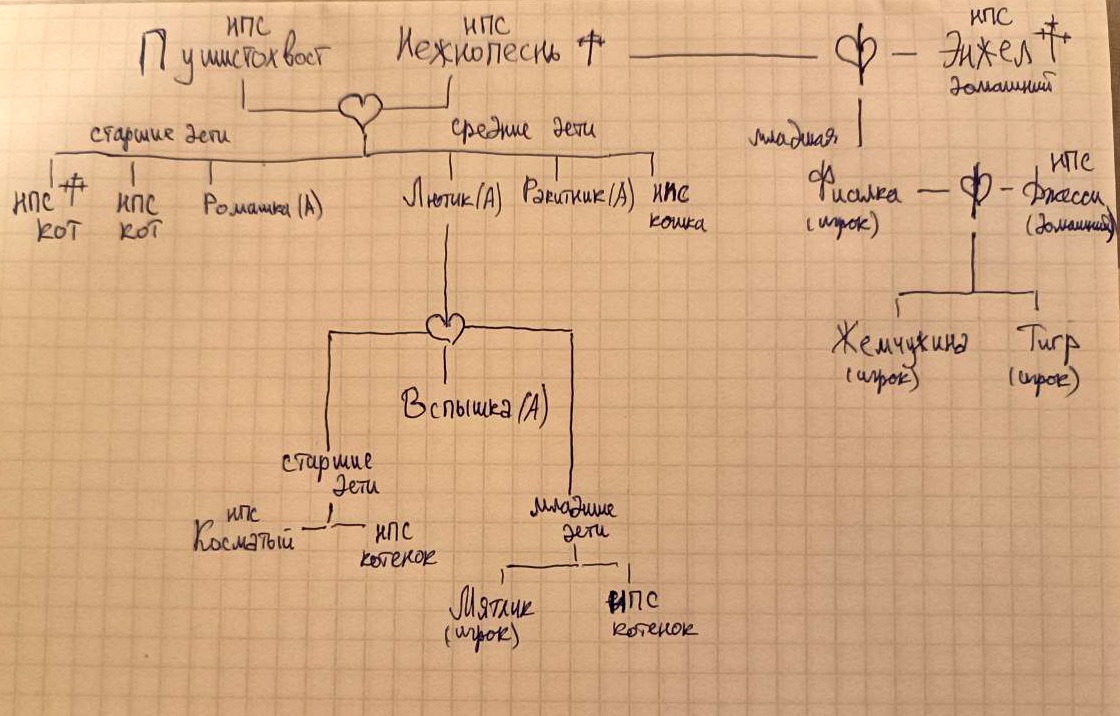 НПС
Пушистохвост
НПС
Нежнопеснь
НПС
Энжел
домашний
старшие дети
средние дети
младшая
НПС
кот
НПС
кот
Ромашка (А)
Лютик (А)
Ракитник (А)
НПС
кошка
Фиалка
(игрок)
НПС
Джесси
(домашний)
Жемчужина
(игрок)
Тигр
(игрок)
Вспышка (А)
старшие
дети
НПС
Косматый
НПС
котенок
младшие
дети
Мятлик
(игрок)
НПС
котенок